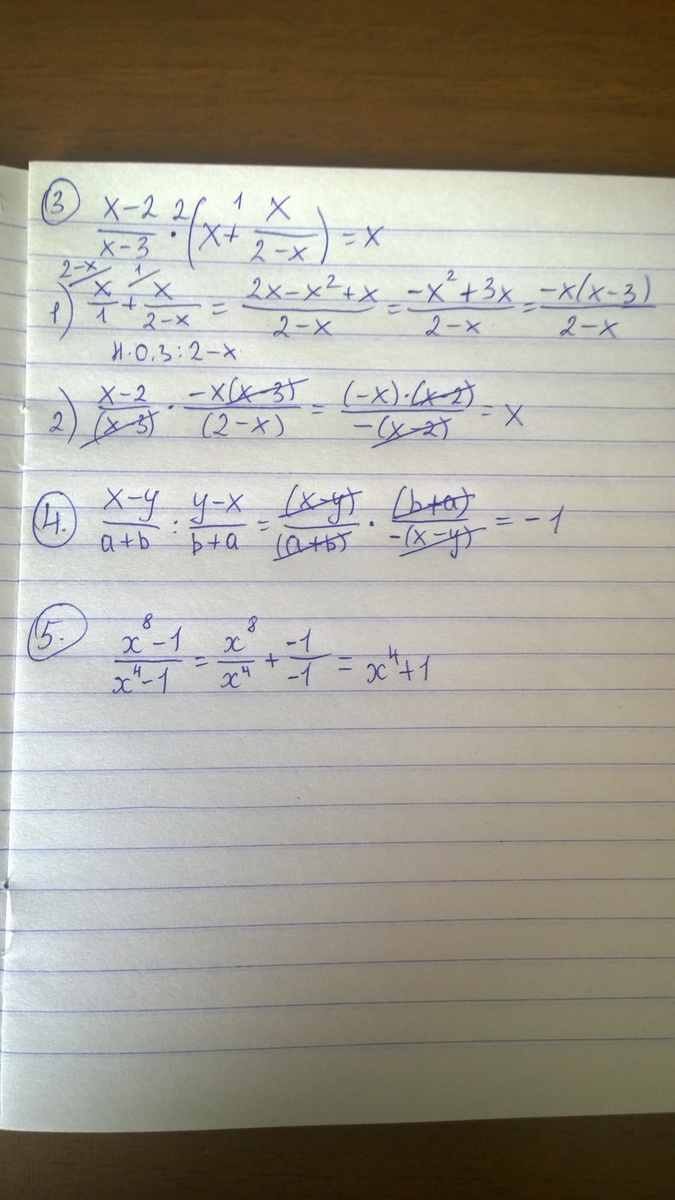 ③ (x-2)/(x-3) ·² (x +¹ x/(2-x)) = x
1) x/1 (2-x) + x/(2-x) (1) = (2x-x²+x)/(2-x) = (-x²+3x)/(2-x) = -x(x-3)/(2-x)
Н.О.З: 2-x
2) (x-2)/(x-3) · -x(x-3)/(2-x) = (-x)·(x-2)/-(x-2) = x
④. (x-y)/(a+b) : (y-x)/(b+a) = (x-y)/(a+b) · (b+a)/-(x-y) = -1
⑤. (x⁸-1)/(x⁴-1) = x⁸/x⁴ + -1/-1 = x⁴+1